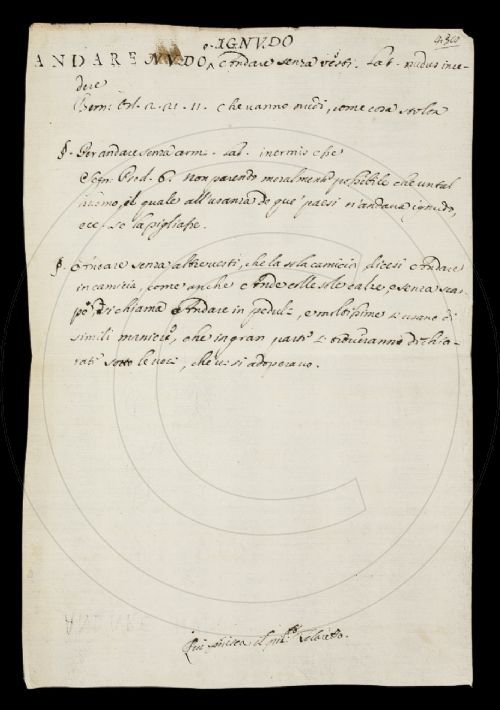 o IGNVDO
ANDARE NVDO, Andare senza vesti. Lat. nudus ince-
dere
Bern: Orl. 2. 21. 11. Che vanno nudi, come cosa stolta
§. Per andare senza arme. Lat. inermis esse
Segn: Pred. 6. Non parendo moralmente possibile che un tal
uomo, il quale all'usanza de que' paesi n'andava ignudo,
se la pigliasse.
§. Andare senza altre vesti, che la sola camicia, dicesi Andare
in camicia, come anche Andare colle sole calze, e senza scar-
pe si chiama Andare in pedul, e moltissime s'usano di
simili maniere, che in gran parte si troveranno dichia-
rate sotto le voci, che vi si adoperano.